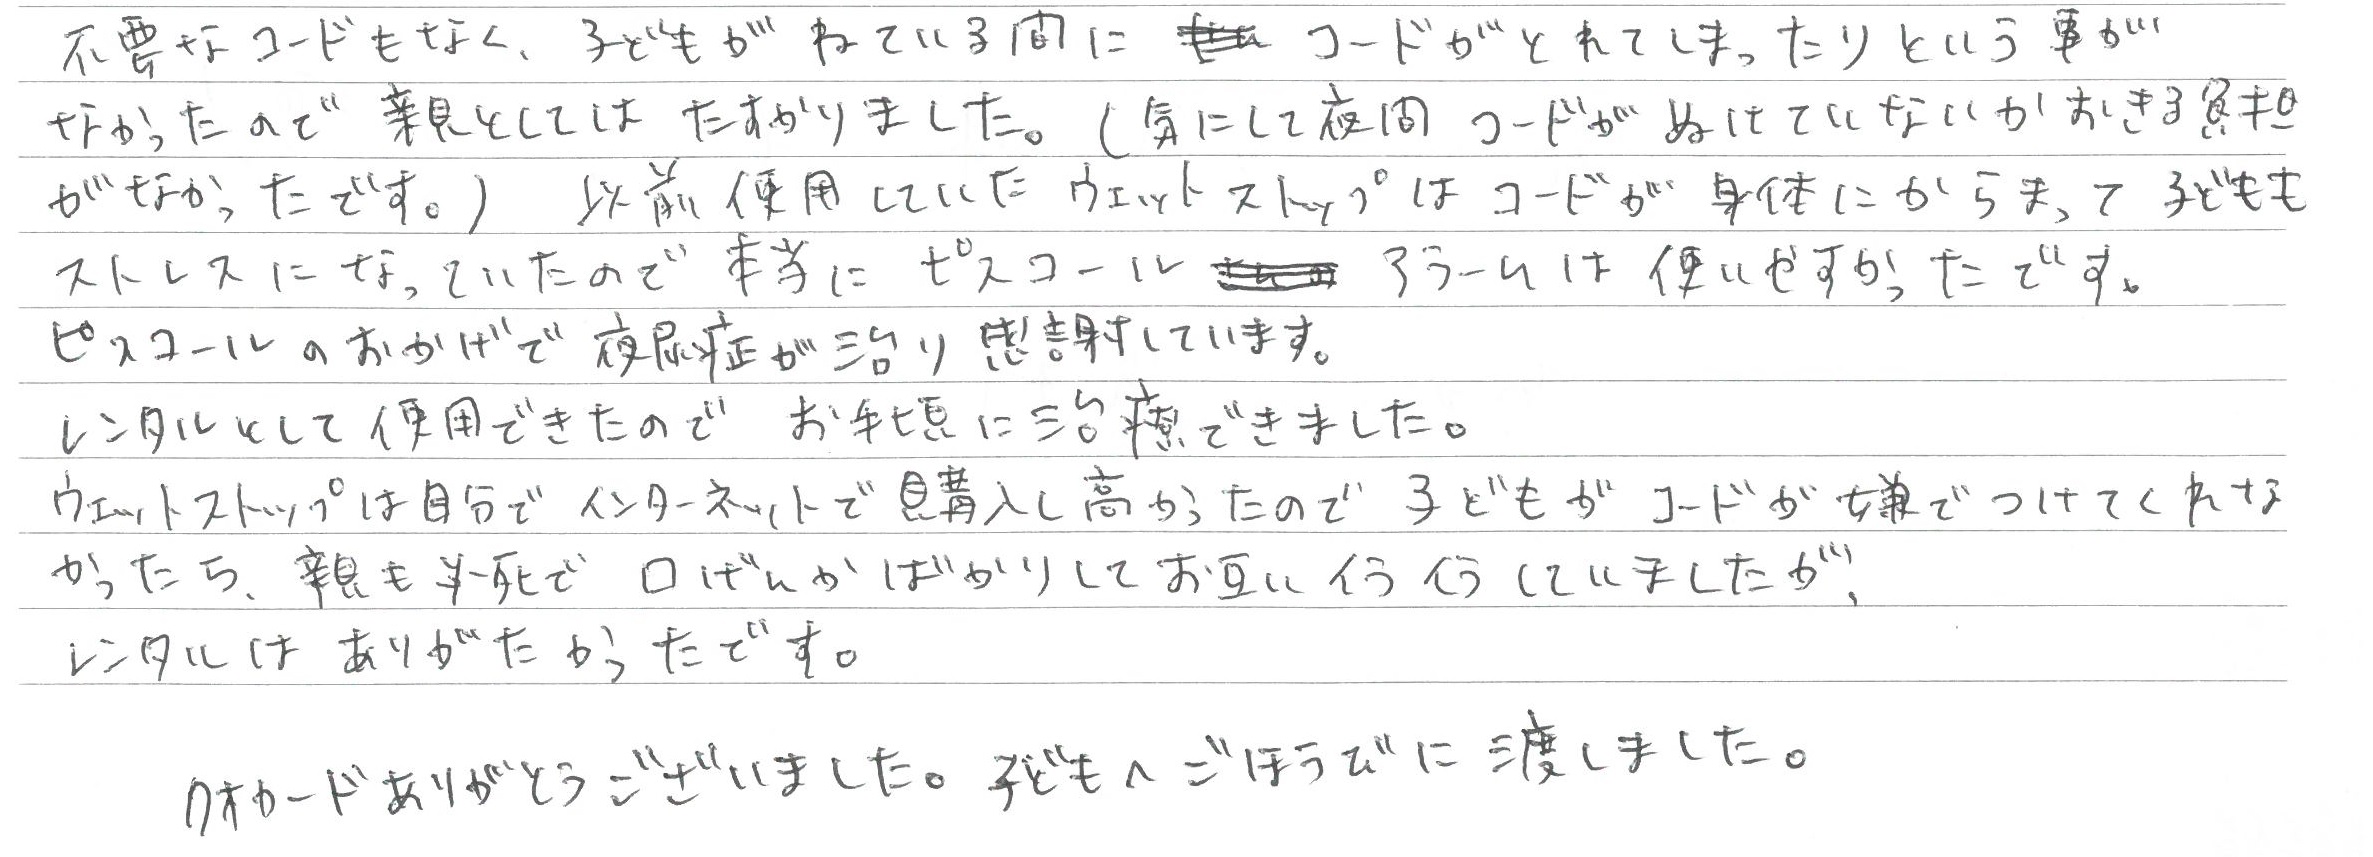 不要なコードもなく、子どもがねている間に コードがとれてしまったりという事が
なかったので 親としては たすかりました。(気にして夜間 コードがぬけていないかおきる負担
がなかったです。) 以前使用していた ウェットストップはコードが身体にからまって子どもも
ストレスになっていたので本当に ピスコール アラームは使いやすかったです。
ピスコールのおかげで夜尿症が治り感謝しています。
レンタルとして使用できたので お手頃に治療できました。
ウェットストップは自分でインターネットで購入し高かったので子どもがコードが嫌でつけてくれな
かったら、親も必死で口げんかばかりしてお互いイライラしていましたが、
レンタルはありがたかったです。
クオカードありがとうございました。子どもへごほうびに渡しました。